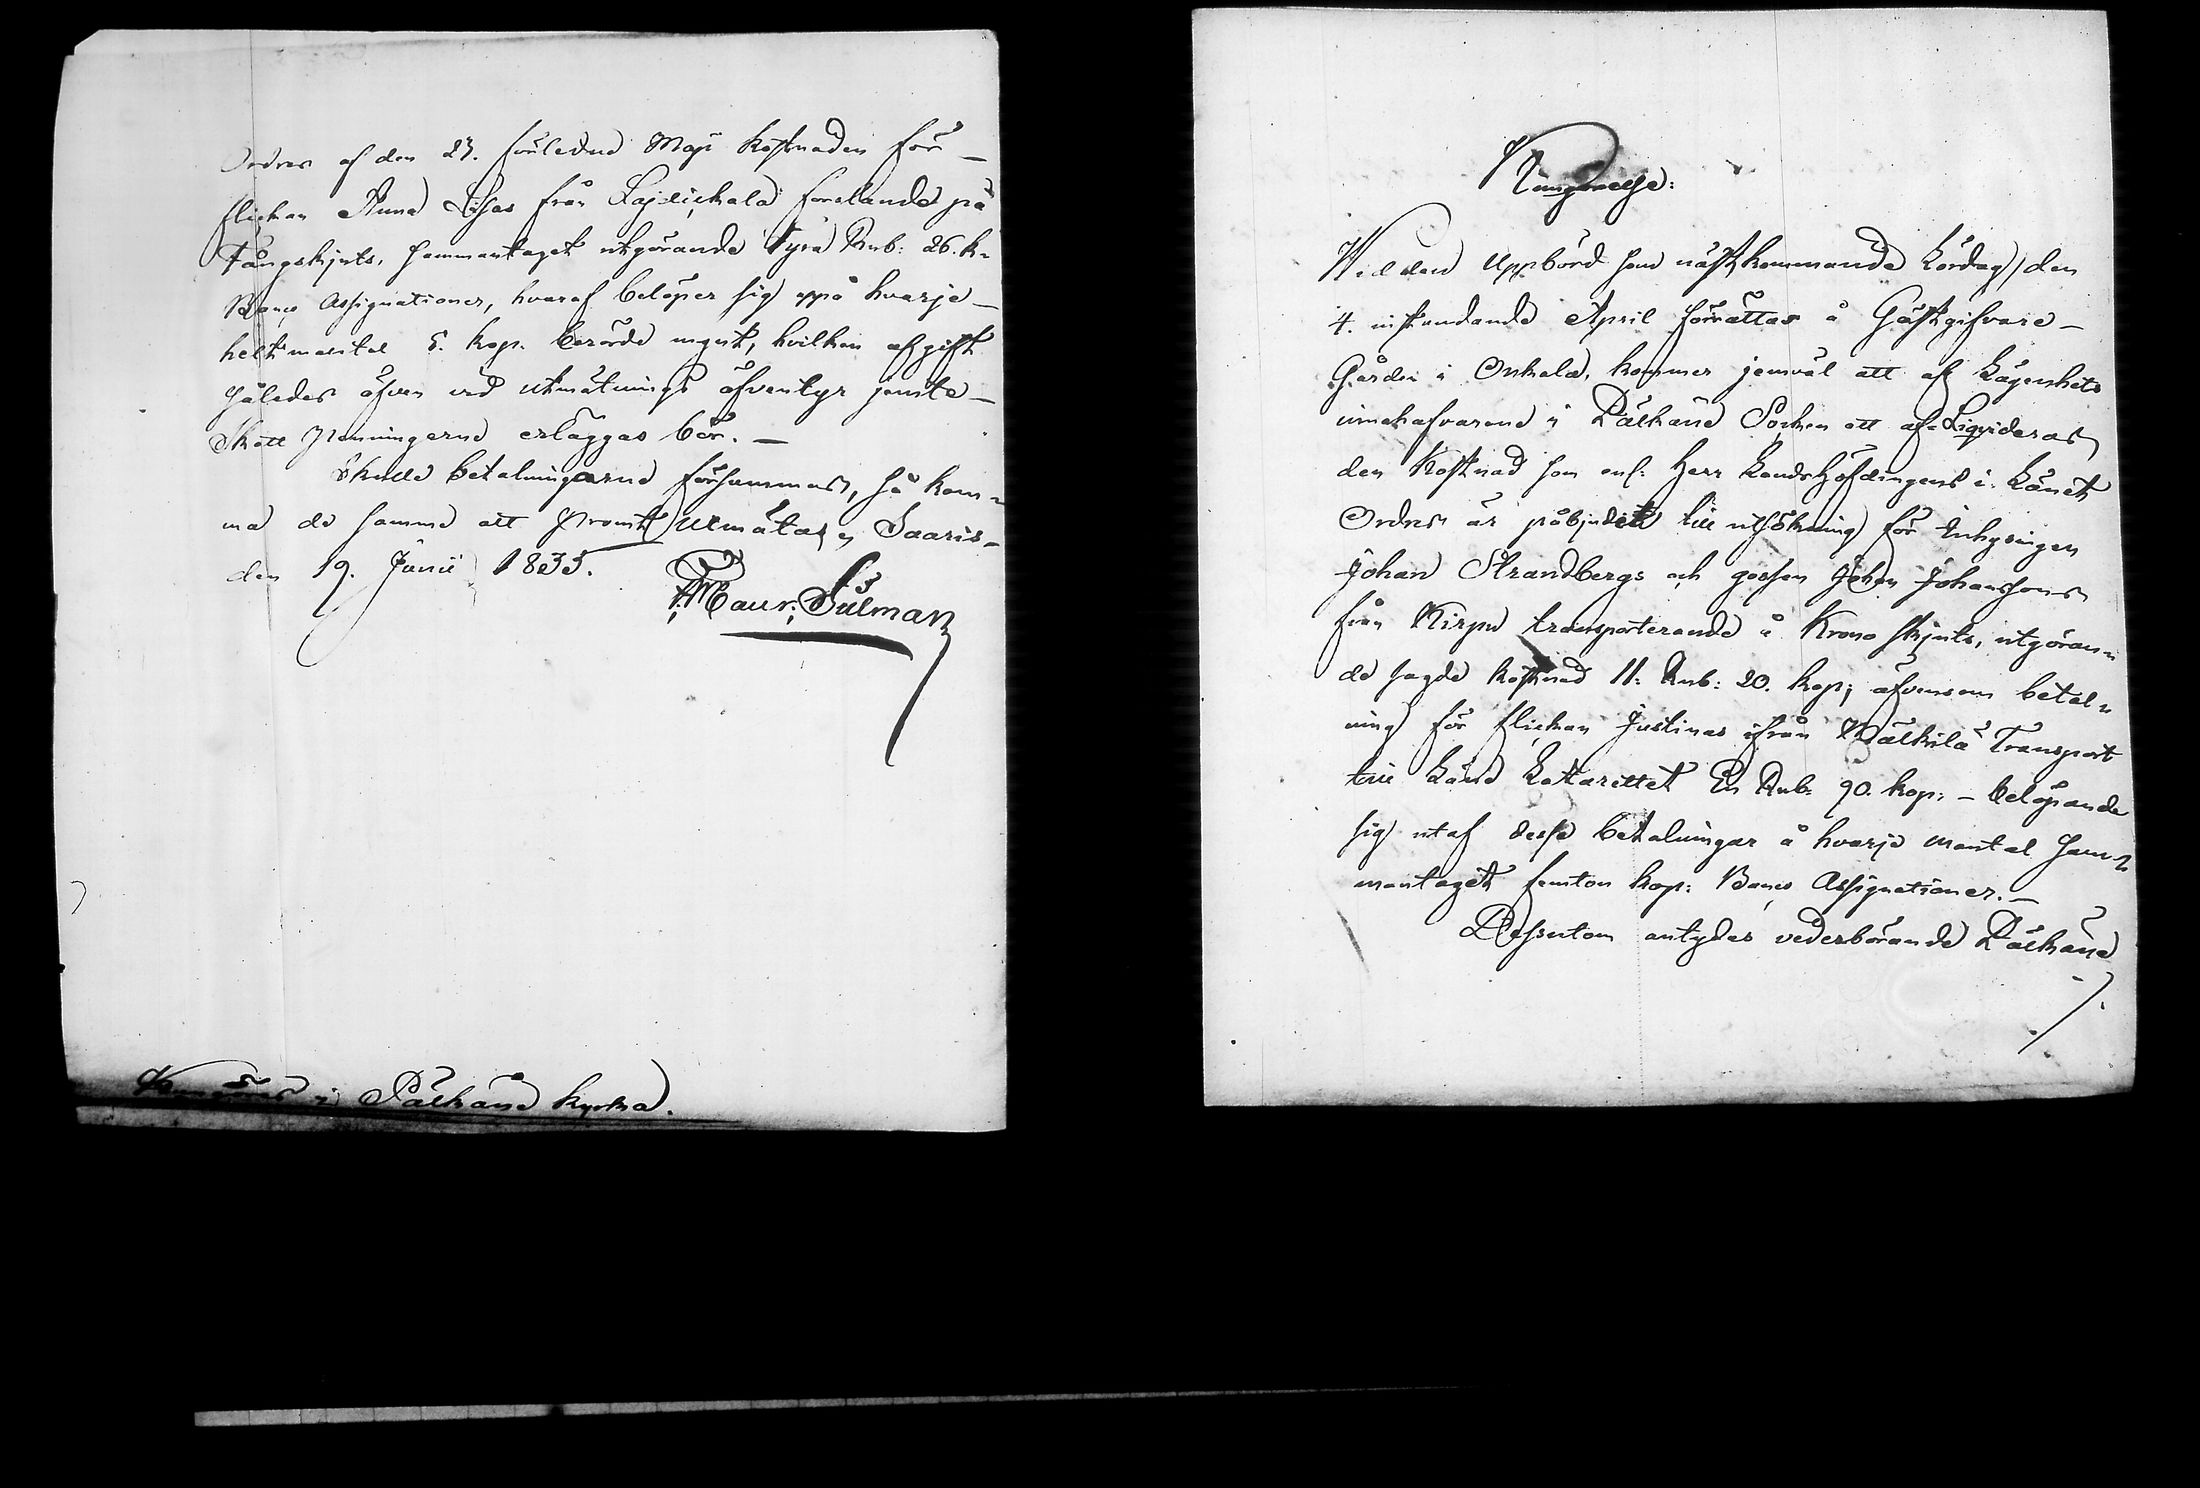 Ordres af den 23. förledne Maji kostnaden för –
flickan Anna Lisas från Lajdickala forslande på
Fångskjuts, sammantaget utgörande Fyra Rub: 26. k=
Banco Assignationer, hvaraf belöper sig uppå hvarje –
helt mantal 5. kop. berörde mynt, hvilken afgift
således äfven vid utmätnings äfventyr jemte –
Skatt penningarne erläggas bör. –
Skulle betalningarne försummas, så kom=
ma de samme att promt utmätas, Saaris –
den 19. Junii 1835.
Maur: Silman
Kungöres i Pälkäne kyrka.
Kungörelse:
Wid den Uppbörd som nästkommande Lördag den
4. instundande April förrättas å Gästgifvare –
Gården i Onkala, kommer jemväl att af Lägenhets
innehafvarene i Pälkäne Socken att af Liqvideras
den Kostnad som enl: Herr Landshöfdingens i Länet
Ordres är påbjudit till utsökning för Inhysingen
Johan Strandbergs och gossen Johan Johanssons
från Kirpu transporterande å Krono skjuts, utgöran=
de sagde kostnad 11. Rub: 20. kop; äfvensom betal=
ning för flickan Justinas ifrån Wälkilä Transport
till Länd Lazarettet En Rub: 90. kop: – belöpande
sig utaf desse betalningar å hvarje mantal sam=
mantaget femton kop: Banco Assignationer. –
Dessutom antydes vederbörande Pälkäne
./.